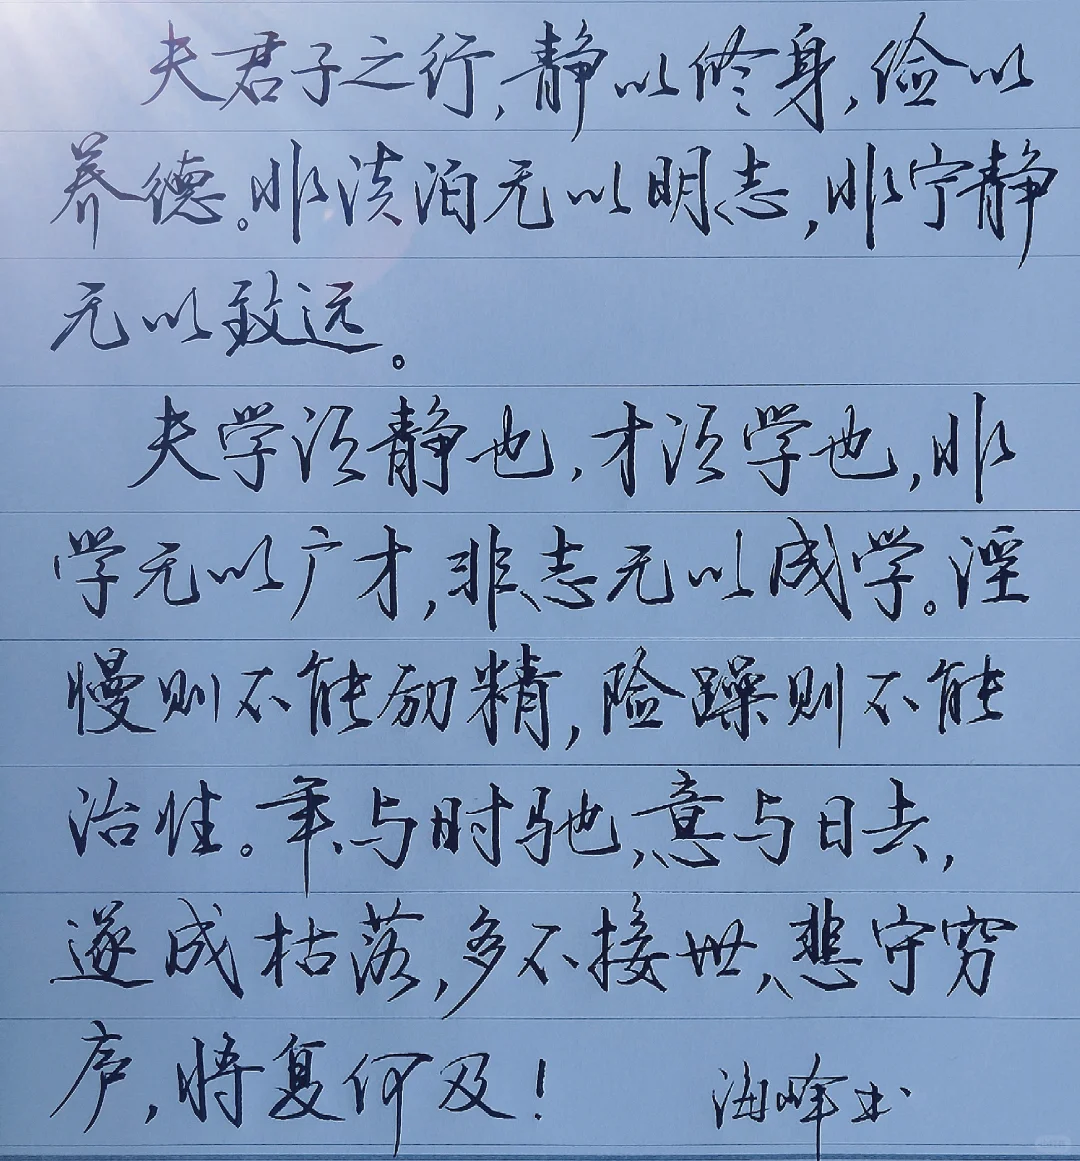 夫君子之行,静以修身,俭以
养德。非淡泊无以明志,非宁静
无以致远。
夫学须静也,才须学也,非
学无以广才,非志无以成学。淫
慢则不能励精,险躁则不能
治性。年与时驰,意与日去,
遂成枯落,多不接世,悲守穷
庐,将复何及!
海峰书